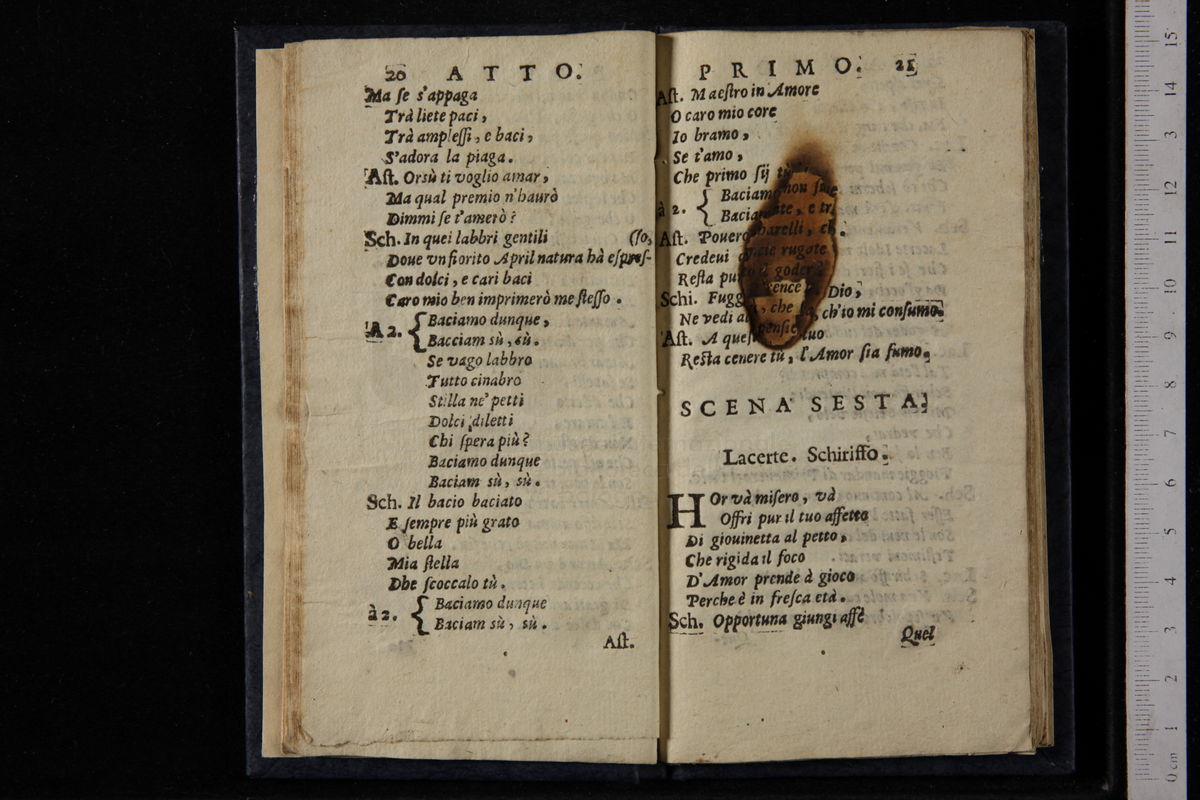 20 ATTO.
Ma se s'appaga
Trà liete paci,
Trà amplessi, e baci,
S'adora la piaga.
Ast. Orsù ti voglio amar,
Ma qual premio n'haurò
Dimmi se t'amerò?
Sch. In quei labbri gentili (so,
Doue vn fiorito April natura hà espres-
Con dolci, e cari baci
Caro mio ben imprimerò me stesso.
A 2. { Baciamo dunque,
Bacciam sù, sù.
Se vago labbro
Tutto cinabro
Stilla ne' petti
Dolci diletti
Chi spera più?
Baciamo dunque
Baciam sù, sù.
Sch. Il bacio baciato
E sempre più grato
O bella
Mia stella
Dhe scoccalo tù.
à 2. { Baciamo dunque
Baciam sù, sù.
Ast.
PRIMO. 21
Ast. Maestro in Amore
O caro mio core
Io bramo,
Se t'amo,
Che primo sij tù
à 2. { Baciamo
Baciam
Ast. Pouero
Credeui
Resta pur
Schi. Fugg Dio,
Ne vedi ch'io mi consumo.
Ast. A ques tuo
Resta cenere tù, l'Amor sia fumo.
SCENA SESTA.
Lacerte. Schiriffo.
HOr và misero, và
Offri pur il tuo affetto
Di giouinetta al petto,
Che rigida il foco
D'Amor prende à gioco
Perche è in fresca età.
Sch. Opportuna giungi affè
Quel
0 cm 1 2 3 4 5 6 7 8 9 10 11 12 13 14 15